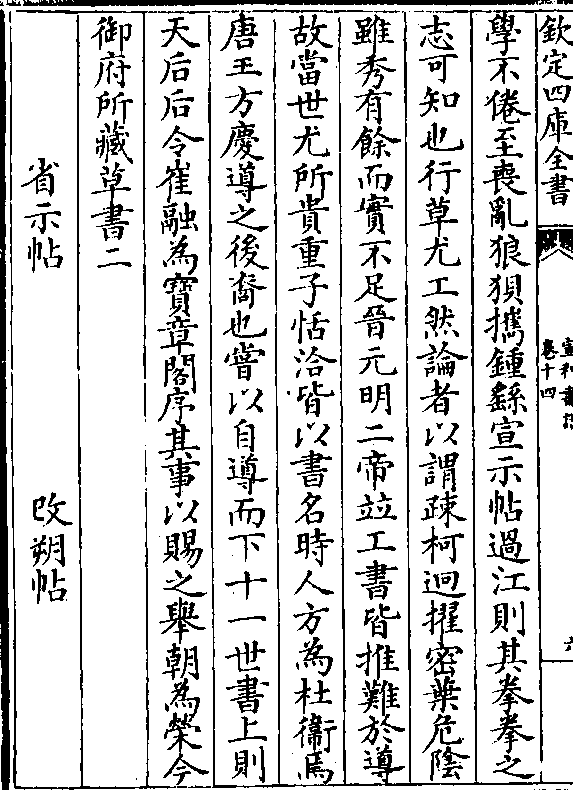 欽定四庫全書
宣和書譜
卷十四
六
學不倦至喪亂狼狽攜鍾繇宣示帖過江則其拳拳之
志可知也行草尤工然論者以謂疎柯迥擢密葉危陰
雖秀有餘而實不足晉元明二帝竝工書皆推難於導
故當世尤所貴重子恬洽皆以書名時人方為杜衞焉
唐王方慶導之後裔也嘗以自導而下十一世書上則
天后后令崔融為寶章閣序其事以賜之舉朝為榮今
御府所藏草書二
省示帖 改朔帖